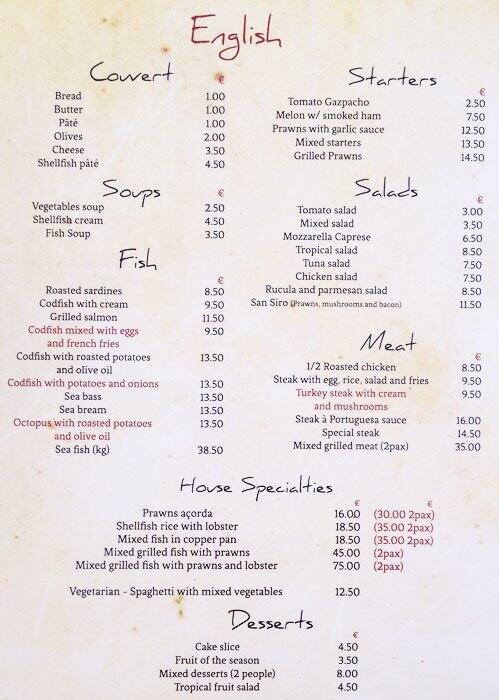 English
Couvert €
Bread 1.00
Butter 1.00
Pâté 1.00
Olives 2.00
Cheese 3.50
Shellfish pâté 4.50
Soups €
Vegetables soup 2.50
Shellfish cream 4.50
Fish Soup 3.50
Fish
€
Roasted sardines 8.50
Codfish with cream 9.50
Grilled salmon 11.50
Codfish mixed with eggs 9.50
and french fries
Codfish with roasted potatoes 13.50
and olive oil
Codfish with potatoes and onions 13.50
Sea bass 13.50
Sea bream 13.50
Octopus with roasted potatoes 13.50
and olive oil
Sea fish (kg) 38.50
Starters
€
Tomato Gazpacho 2.50
Melon w/ smoked ham 7.50
Prawns with garlic sauce 12.50
Mixed starters 13.50
Grilled Prawns 14.50
Salads
€
Tomato salad 3.00
Mixed salad 3.50
Mozzarella Caprese 6.50
Tropical salad 8.50
Tuna salad 7.50
Chicken salad 7.50
Rucula and parmesan salad 8.50
San Siro (Prawns, mushrooms and bacon) 11.50
Meat
€
1/2 Roasted chicken 8.50
Steak with egg, rice, salad and fries 9.50
Turkey steak with cream 9.50
and mushrooms
Steak à Portuguesa sauce 16.00
Special steak 14.50
Mixed grilled meat (2pax) 35.00
House Specialties
€ €
Prawns açorda 16.00 (30.00 2pax)
Shellfish rice with lobster 18.50 (35.00 2pax)
Mixed fish in copper pan 18.50 (35.00 2pax)
Mixed grilled fish with prawns 45.00 (2pax)
Mixed grilled fish with prawns and lobster 75.00 (2pax)
Vegetarian - Spaghetti with mixed vegetables 12.50
Desserts
€
Cake slice 4.50
Fruit of the season 3.50
Mixed desserts (2 people) 8.00
Tropical fruit salad 4.50